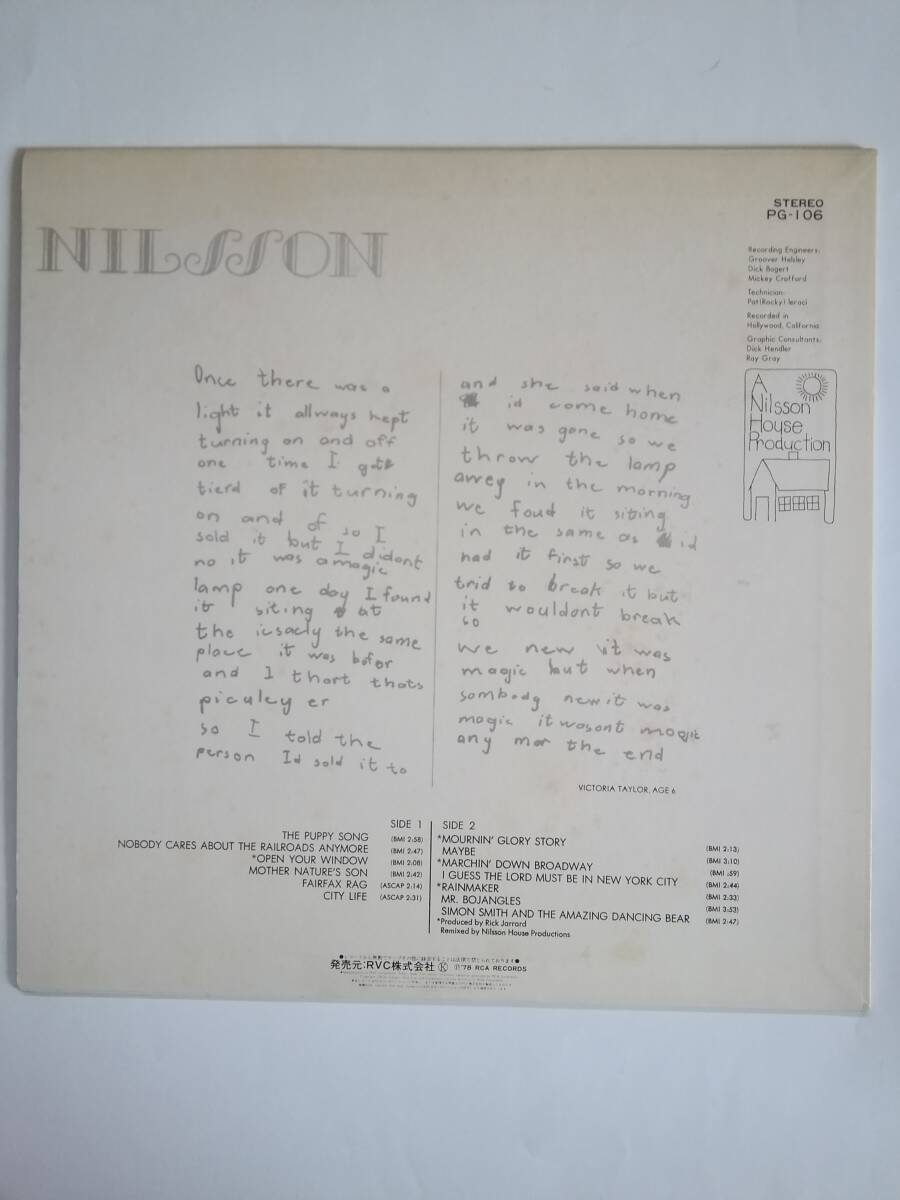 STEREO
PG-106
NILSSON
Recording Engineers:
Groover Helsley
Dick Bogert
Mickey Crofford
Technician:
Pat(Rocky) Ieraci
Recorded in
Hollywood, California
Graphic Consultants:
Dick Hendler
Ray Gray
A
Nilsson
House
Production
Once there was a
light it allways kept
turning on and off
one time I got
tierd of it turning
on and of so I
sold it but I didont
no it was a magic
lamp one day I found
it siting at
the icsacly the same
place it was befor
and I thort thats
piculey er
so I told the
person Id sold it to
and she said when
id come home
it was gone so we
throw the lamp
awey in the morning
we foud it siting
in the same as id
had it first so we
trid to break it but
it wouldont break
so
we new it was
magic but when
sombody new it was
magic it wasont magic
any mor the end
VICTORIA TAYLOR, AGE 6
SIDE 1
THE PUPPY SONG (BMI 2:58)
NOBODY CARES ABOUT THE RAILROADS ANYMORE (BMI 2:47)
*OPEN YOUR WINDOW (BMI 2:08)
MOTHER NATURE'S SON (BMI 2:42)
FAIRFAX RAG (ASCAP 2:14)
CITY LIFE (ASCAP 2:31)
SIDE 2
*MOURNIN' GLORY STORY (BMI 2:13)
MAYBE (BMI 3:10)
*MARCHIN' DOWN BROADWAY (BMI :59)
I GUESS THE LORD MUST BE IN NEW YORK CITY (BMI 2:44)
*RAINMAKER (BMI 2:33)
MR. BOJANGLES (BMI 3:53)
SIMON SMITH AND THE AMAZING DANCING BEAR (BMI 2:47)
*Produced by Rick Jarrard
Remixed by Nilsson House Productions
発売元:RVC株式会社 Ⓚ Ⓟ'78 RCA RECORDS